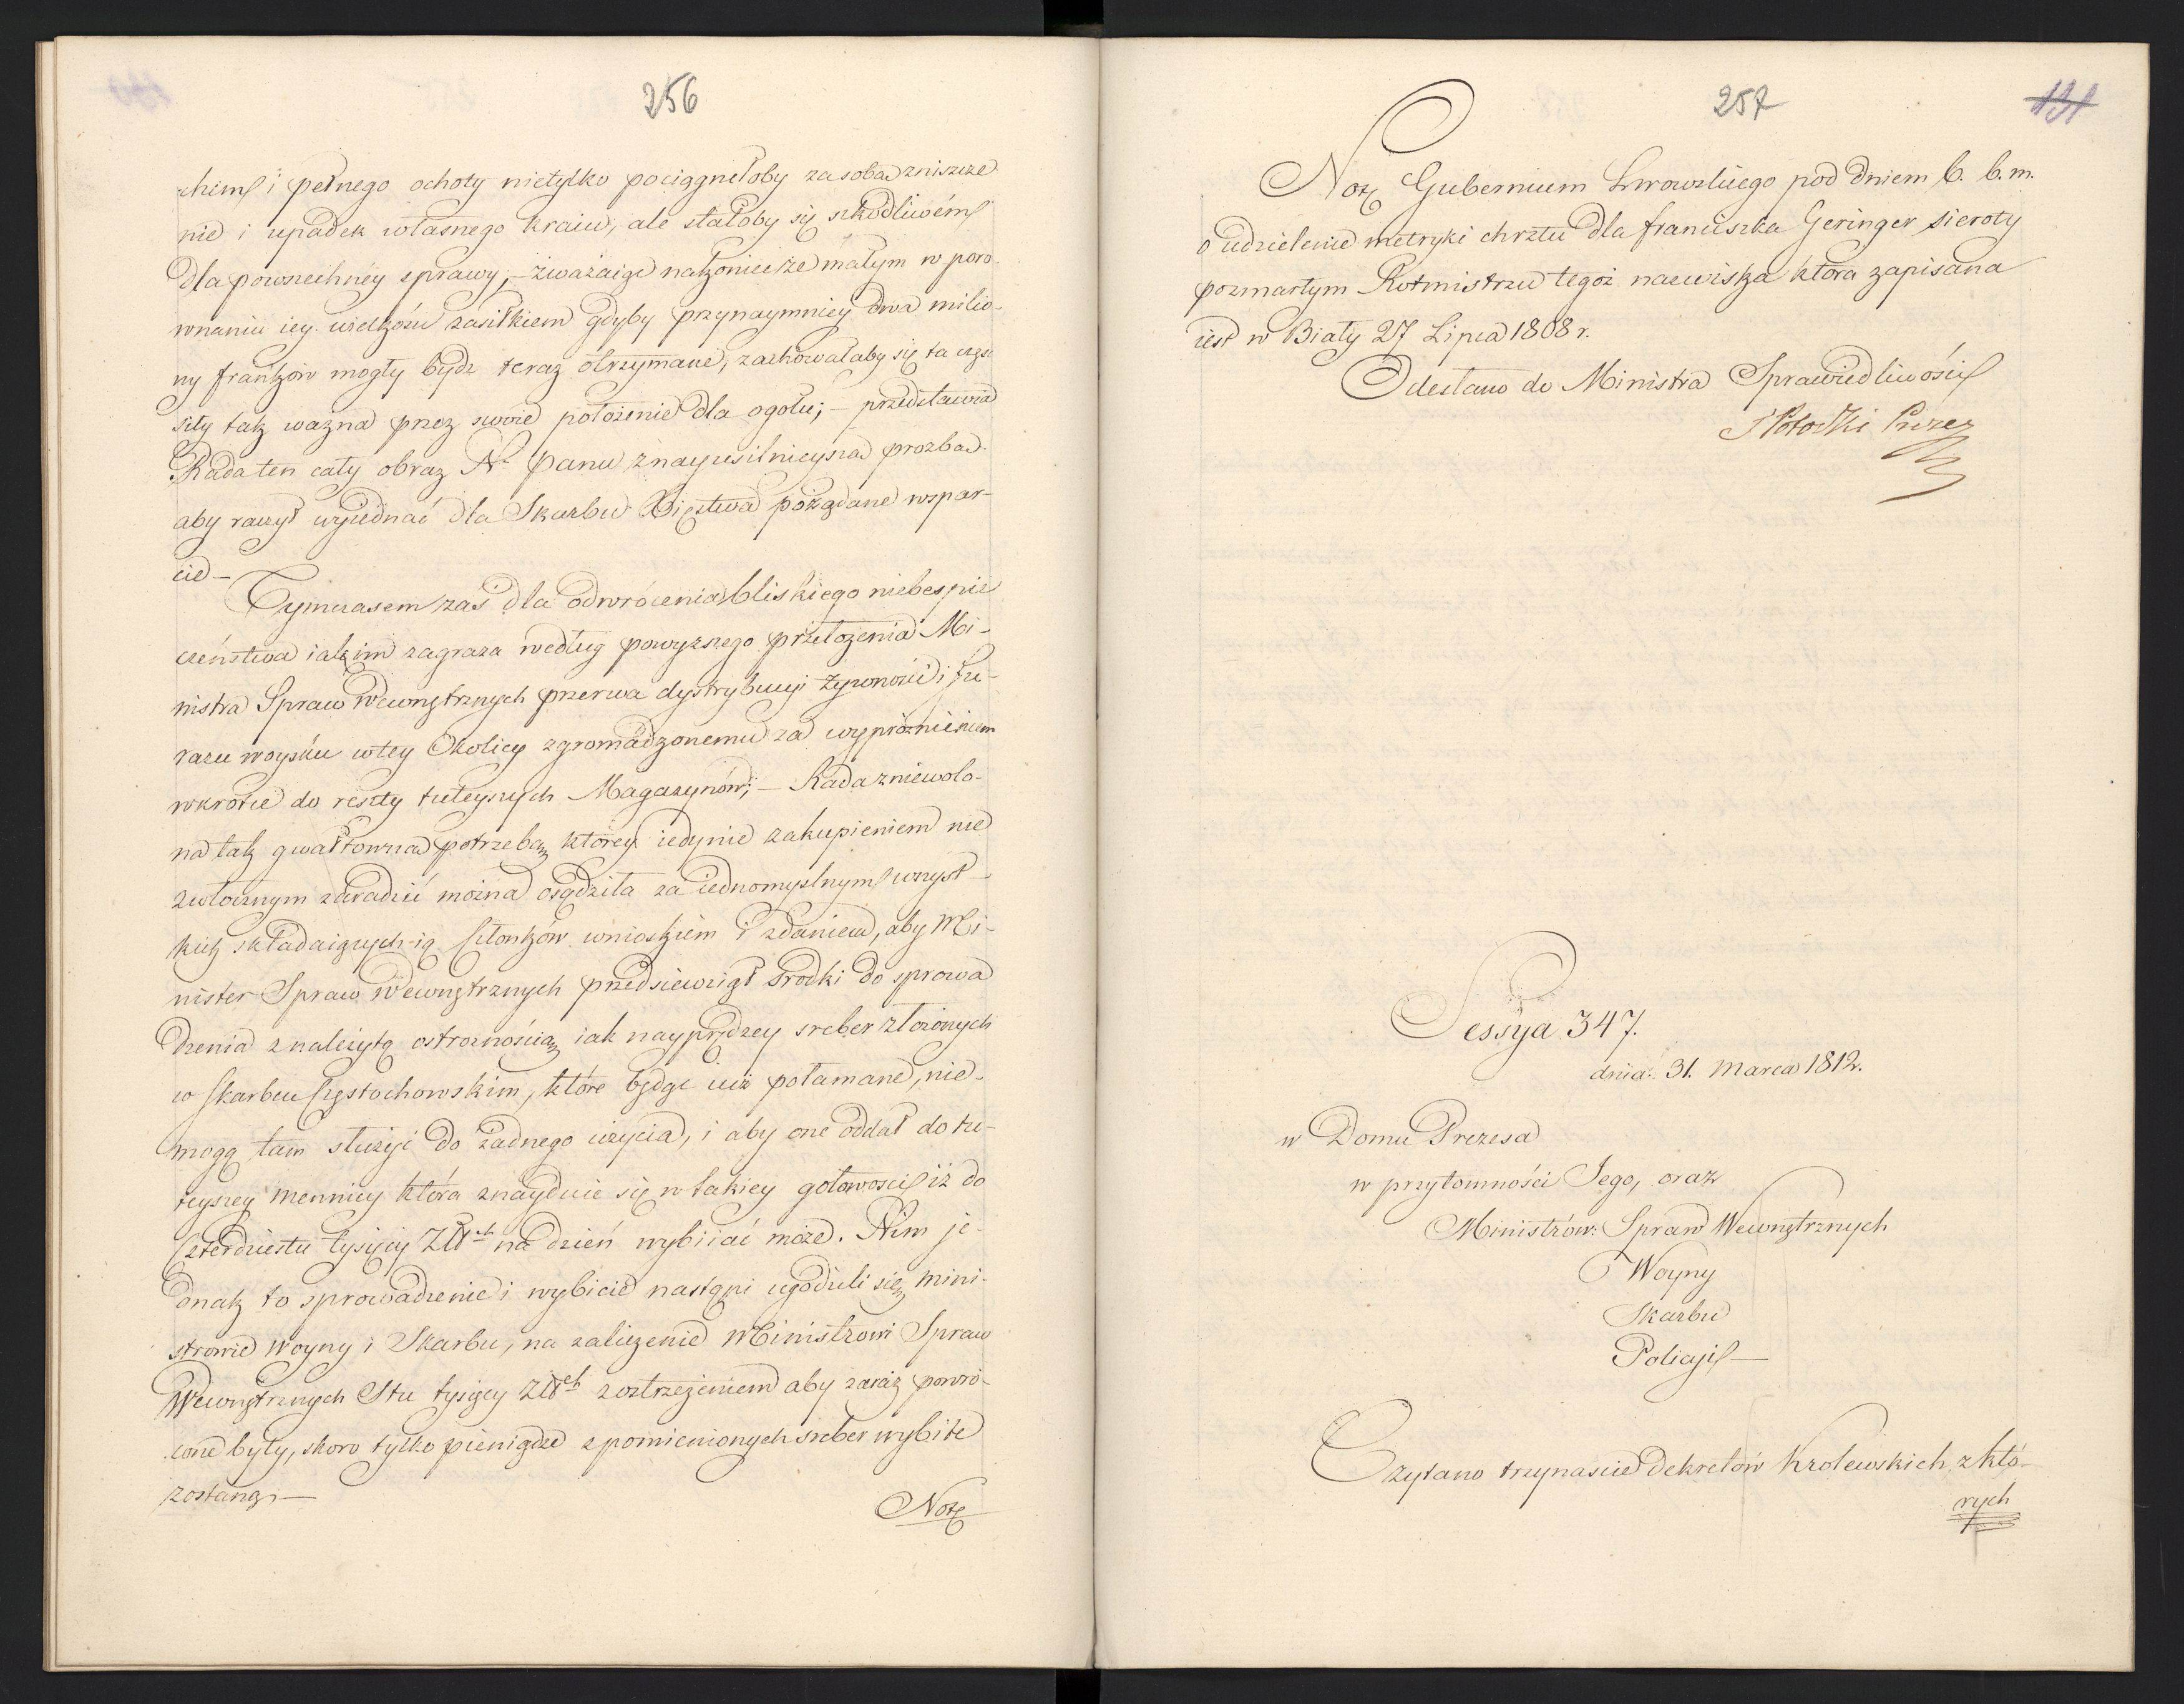 256
chim i pełnego ochoty nietylko pociągnełoby za soba zniszcze
nie i upadek własnego kraiu, ale stałoby się szkodliwém
dla powszechnéy sprawy, – zważaiąc nakoniec że małym w poro-
wnaniu iey widoków zasiłkiem gdyby przynaymniey dwa milio-
ny franków mogły bydz teraz otrzymane, zachowałaby się ta część
siły tak ważna przez swoie położenie dla ogołu; – przedstawia
Rada ten cały obraz N. Panu z nayusilnieyszą prozba
aby raczył wyiednać dla Skarbu Xięstwa pożądane wspar-
cie –
Tymczasem zaś dla odwrócenia bliskiego niebespie
czeństwa iakim zagraża według powyższego przełożenia Mi-
nistra Spraw Wewnętrznych przerwa dystrybucyi żywności i fu-
rażu woysku w tey Okolicy zgromadzonemu za wyprożnieniem
wkrotce do reszty tuteyszych Magazynów; – Rada zniewolo-
na tak gwałtowna potrzebą, ktorey iedynie zakupieniem nie
zwłocznym zaradzić można osądziła za iednomyslnym wszyst-
kich składaiących ią Członków wnioskiem i zdaniem, aby Mi-
nister Spraw Wewnętrznych przedsiewziął srodki do sprowa
dzenia z należytą ostrożnością iak nayprędzey sreber złożonych
w Skarbcu Częstochowskim, które będąc iuż połamane, nie-
mogą tam służyć do żadnego użycia, i aby one oddał do tu-
teyszey mennicy która znayduie się w takiey gotowosci iż do
Czterdziestu tysięcy Złł<sup>ch</sup> na dzień wybiiać może. Nim je-
dnak to sprowadzenie i wybicie nastąpi ugodzili się Mini-
strowie Woyny i Skarbu, na zaliczenie Ministrowi Spraw
Wewnętrznych Stu tysięcy Złł<sup>ch</sup> z ostrzeżeniem aby zaraz powró-
cone były, skoro tylko pieniądze z pomienionych sreber wybite
zostaną –
Notę
257
131
Notę Gubernium Lwowskiego pod dniem 6. b. m.
o udzielenie metryki chrztu dla franciszka Geringer sieroty
po zmarłym Rotmistrzu tegoż nazwiska która zapisana
iest w Biały 27 Lipca 1808 r.
Odesłano do Ministra Sprawiedliwości
S Potocki Prezes
Sessya 347.
dnia 31. Marca 1812.
w Domu Prezesa
w przytomności Jego, oraz
Ministrów: Spraw Wewnętrznych
Woyny
Skarbu
Policyi –
Czytano trzynascie Dekretów Krolewskich z któ-
rych